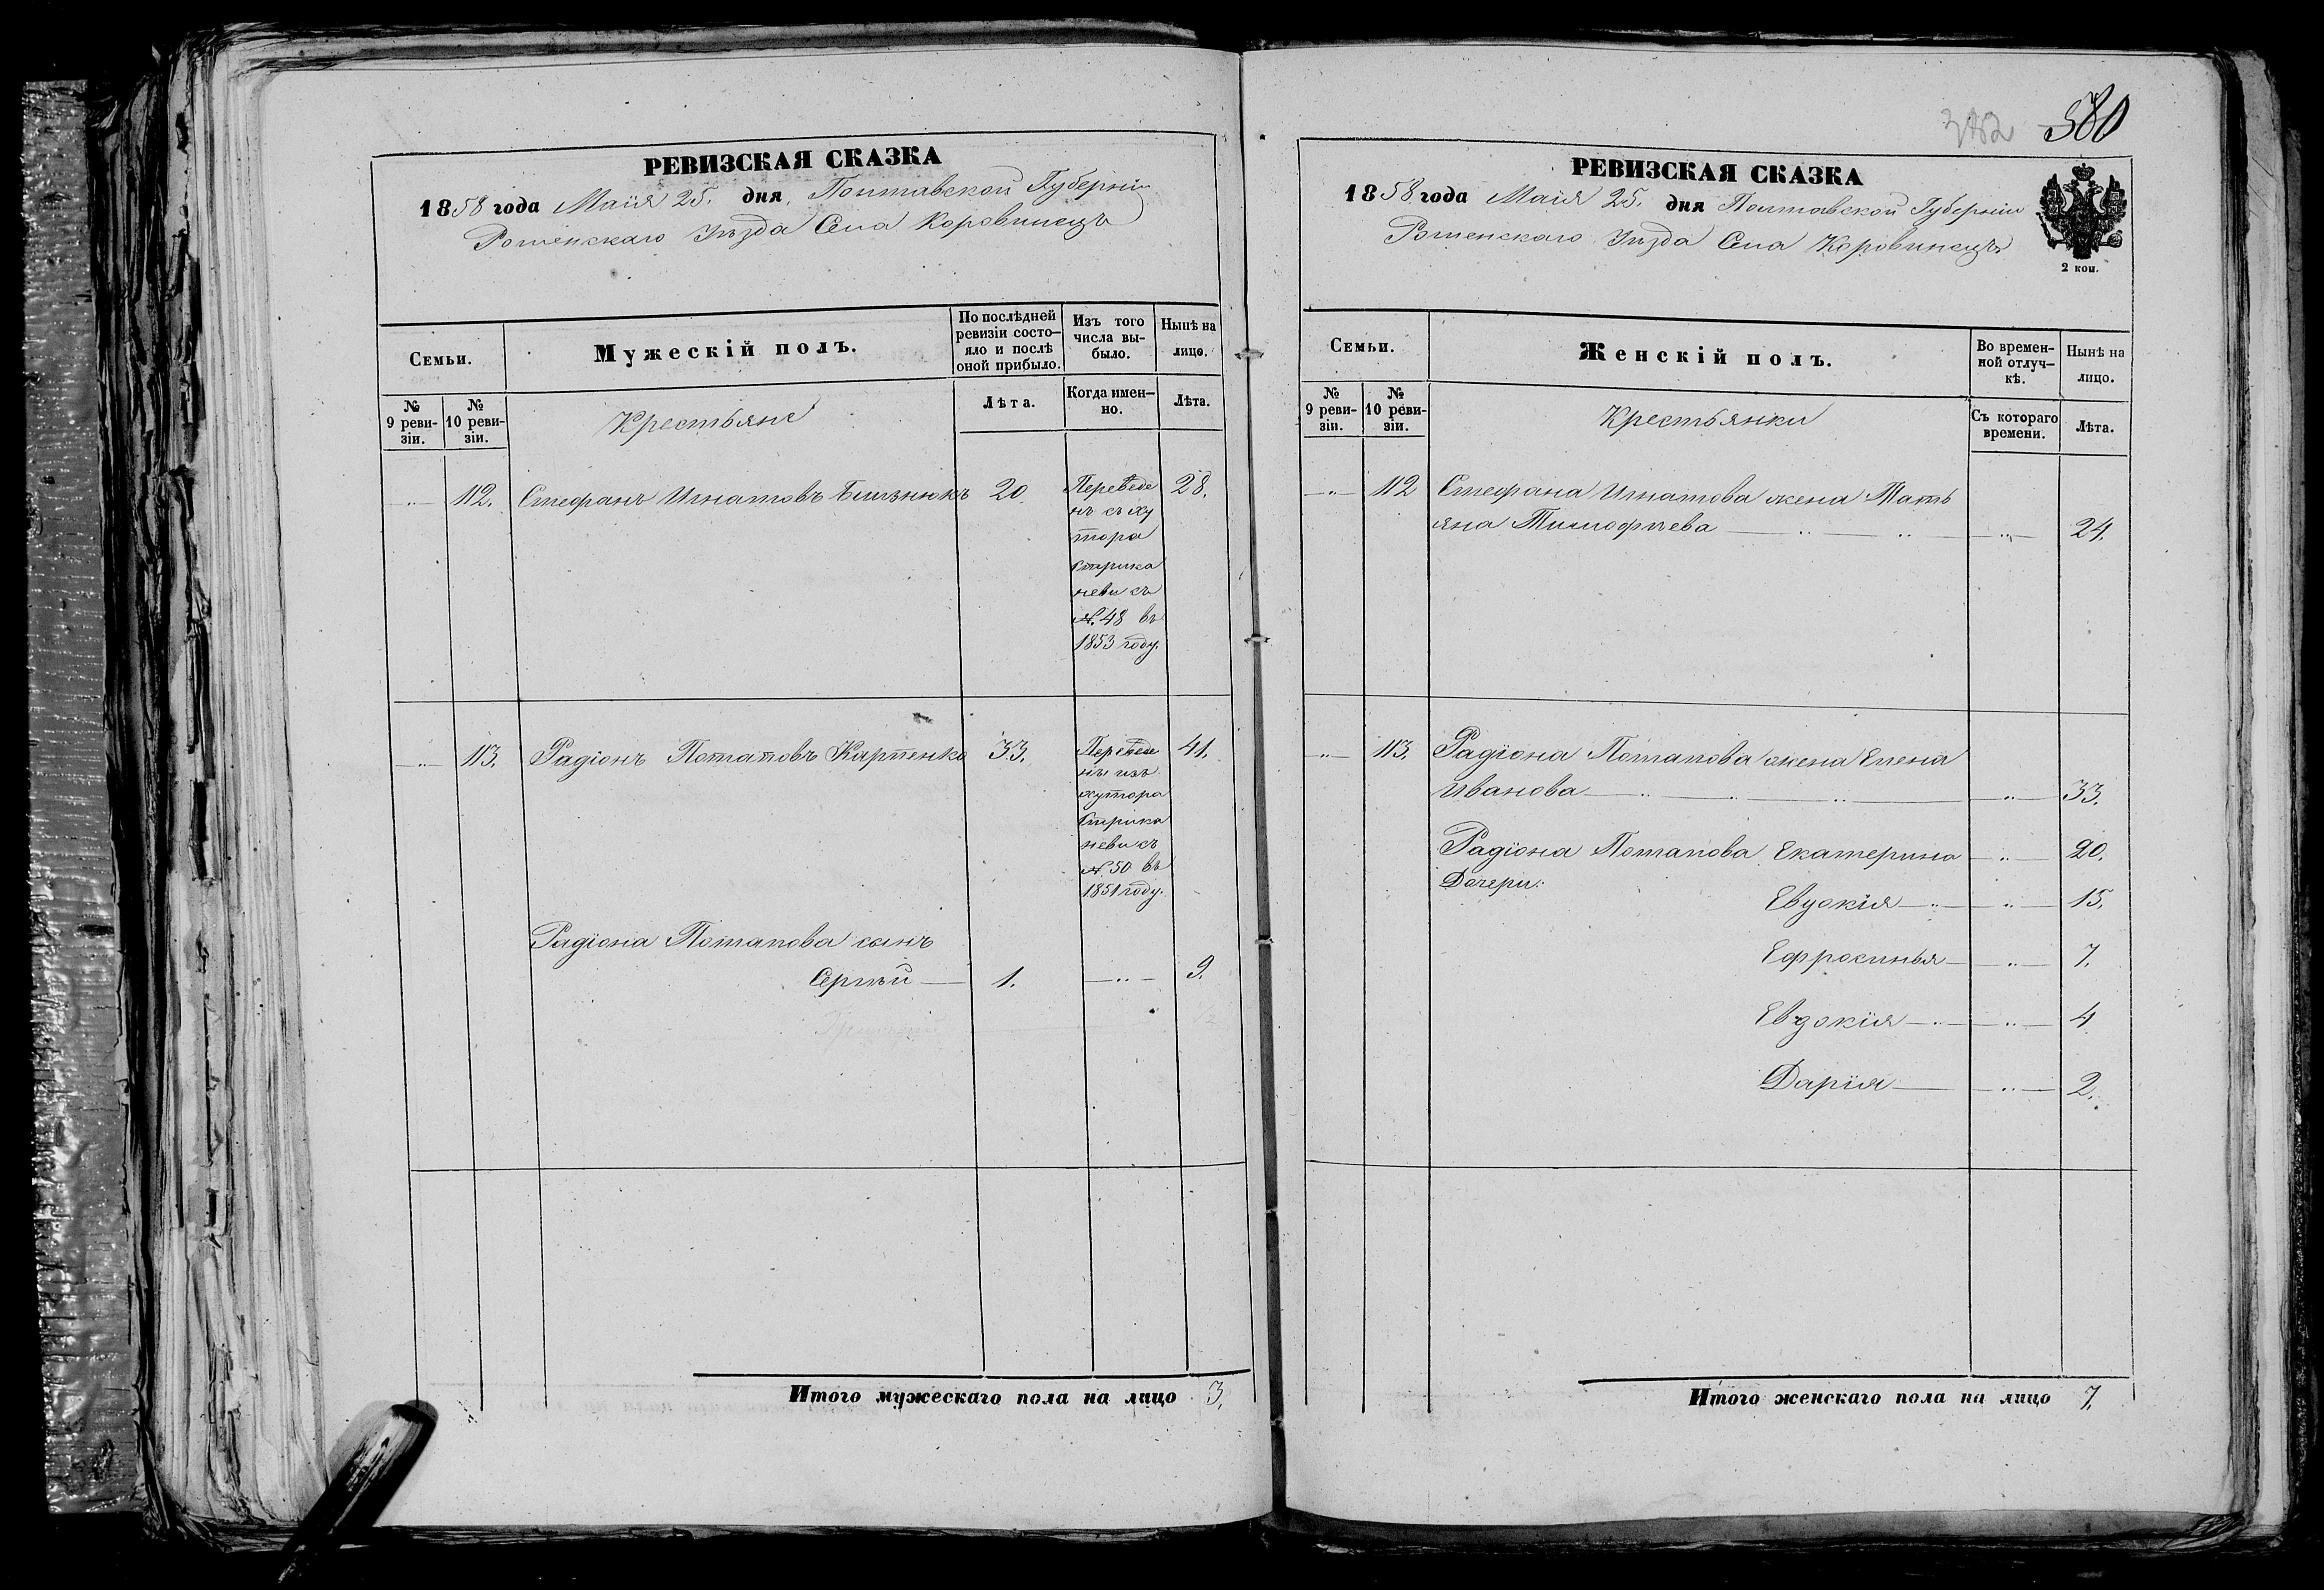 РЕВИЗСКАЯ СКАЗКА
1858 года Маія 25. дня, Полтавской Губерніи
Роменскаго Уѣзда Села Коровинецъ
Семьи.
Мужескій полъ.
По послѣдней ревизіи состояло и послѣ оной прибыло.
Изъ того числа выбыло.
Нынѣ на лицо.
№ 9 ревизіи.
№ 10 ревизіи.
Крестьяне
Лѣта.
Когда именно.
Лѣта.
„ 112. Стефанъ Игнатовъ Близнюкъ 20. 28.
Переведе
нъ съ ху
тора
Стрика
неви съ
№. 48 въ
1853 году.
„ 113. Радіонъ Потаповъ Карпенко 33. 41.
Переведе
нъ изъ
хутора
Стрика
неви съ
№. 50 въ
1851 году.
Радіона Потапова сынъ
Сергѣй — 1. — „ — 9.
Итого мужескаго пола на лицо 3.
580
РЕВИЗСКАЯ СКАЗКА
1858 года Маія 25. дня Полтавской Губерніи
Роменскаго Уѣзда Села Коровинецъ
2 коп.
Семьи.
Женскій полъ.
Во временной отлучкѣ.
Нынѣ на лицо.
№ 9 ревизіи.
№ 10 ревизіи.
Крестьянки
Съ котораго времени.
Лѣта.
„ 112 Стефана Игнатова жена Тать
яна Тимофѣева — „ — „ — „ — 24.
„ 113. Радіона Потапова жена Елена
Иванова — „ — „ — „ — „ — 33.
Радіона Потапова Екатерина — „ — 20.
Дочери:
Евдокія — „ — „ — 15.
Ефросинья — „ — 7.
Евдокія — „ — „ — 4
Дарія — „ — 2.
Итого женскаго пола на лицо 7.